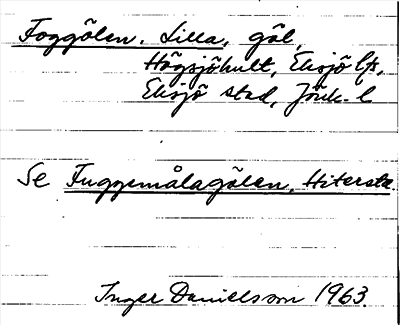 Foggölen. Lilla, göl,
Högsjöhult, Eksjö lfs,
Eksjö stad, Jönk. l
Se Fuggemålagölen, Hitersta.
Inger Danielsson 1963.